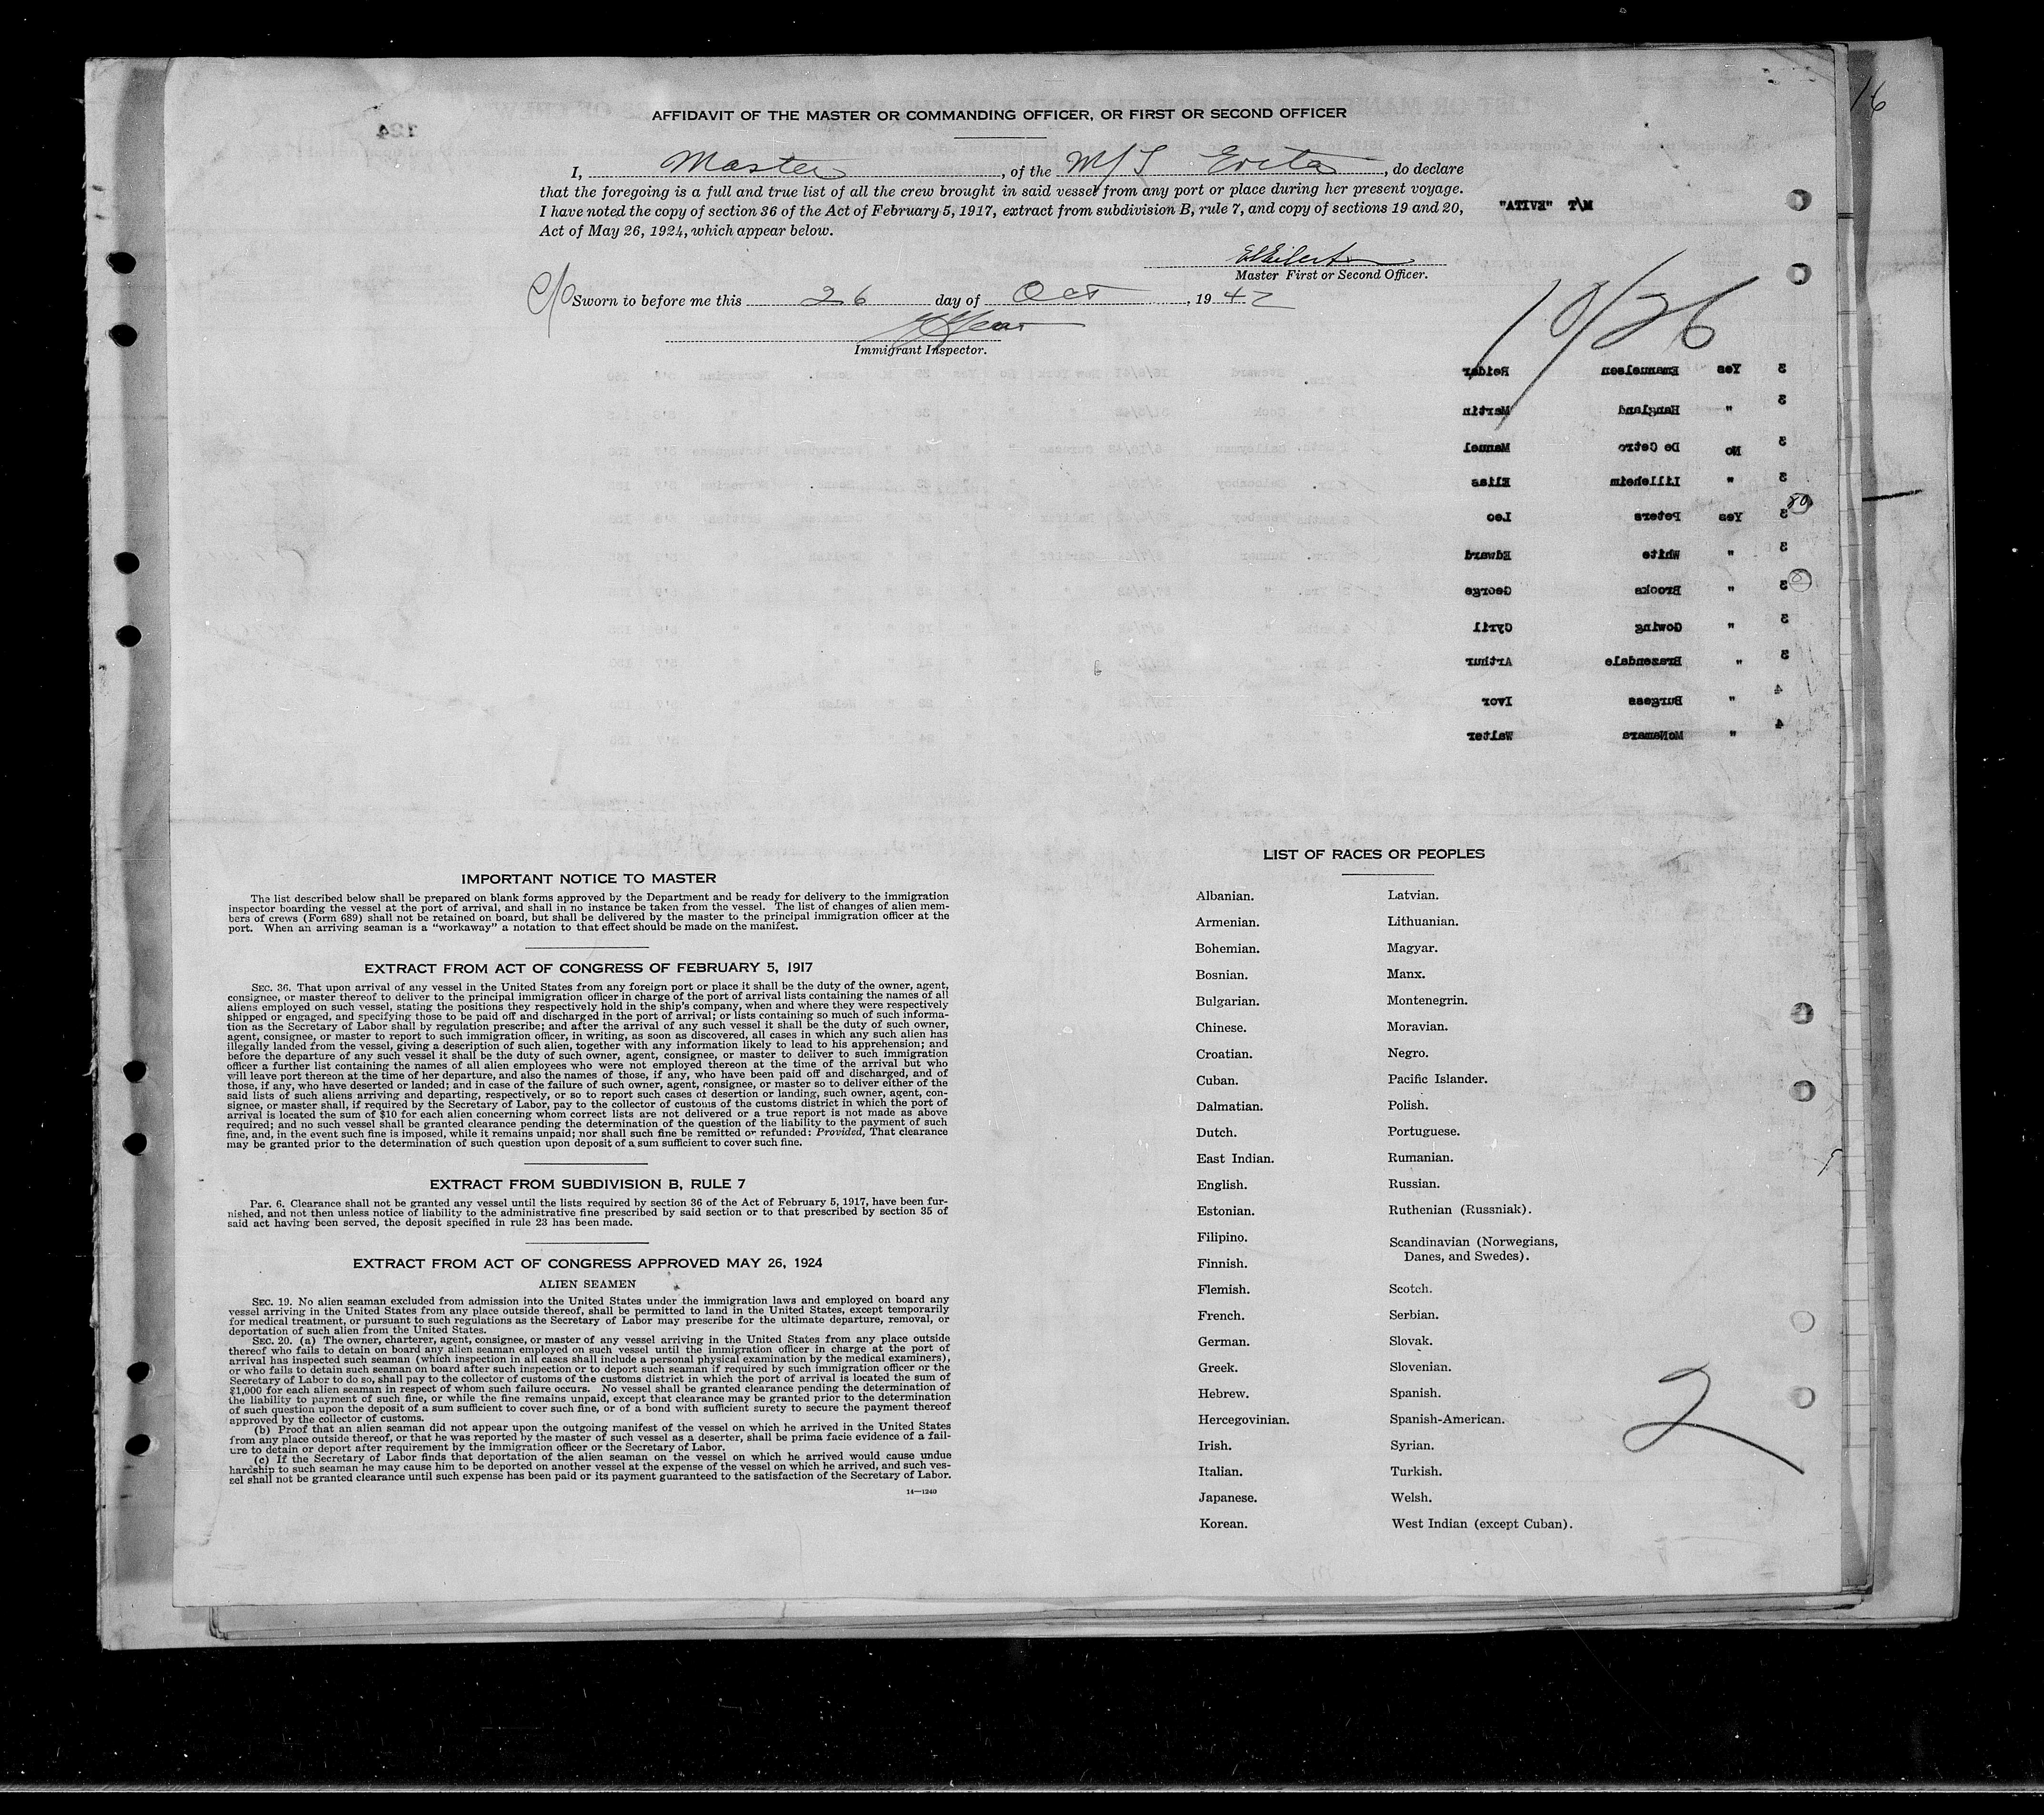 16
AFFIDAVIT OF THE MASTER OR COMMANDING OFFICER, OR FIRST OR SECOND OFFICER
124
I, Master, of the M/T Evita, do declare
that the foregoing is a full and true list of all the crew brought in said vessel from any port or place during her present voyage.
I have noted the copy of section 36 of the Act of February 5, 1917, extract from subdivision B, rule 7, and copy of sections 19 and 20,
Act of May 26, 1924, which appear below.
M/T "EVITA"
Master First or Second Officer.
Sworn to before me this 26 day of Oct, 1942
Immigrant Inspector.
10/26
3 Yes Emanuelsen Reidar
3 " Hangland Martin
3 No De Cetro Manuel
3 " Lilleheim Elias
3 Yes Peters Leo
3 " White Edward
3 " Brooks George
3 " Gowing Cyril
3 " Brazendale Arthur
4 " Burgess Ivor
4 " McNamara Walter
IMPORTANT NOTICE TO MASTER
The list described below shall be prepared on blank forms approved by the Department and be ready for delivery to the immigration
inspector boarding the vessel at the port of arrival, and shall in no instance be taken from the vessel. The list of changes of alien mem-
bers of crews (Form 689) shall not be retained on board, but shall be delivered by the master to the principal immigration officer at the
port. When an arriving seaman is a "workaway" a notation to that effect should be made on the manifest.
EXTRACT FROM ACT OF CONGRESS OF FEBRUARY 5, 1917
SEC. 36. That upon arrival of any vessel in the United States from any foreign port or place it shall be the duty of the owner, agent,
consignee, or master thereof to deliver to the principal immigration officer in charge of the port of arrival lists containing the names of all
aliens employed on such vessel, stating the positions they respectively hold in the ship's company, when and where they were respectively
shipped or engaged, and specifying those to be paid off and discharged in the port of arrival; or lists containing so much of such informa-
tion as the Secretary of Labor shall by regulation prescribe; and after the arrival of any such vessel it shall be the duty of such owner,
agent, consignee, or master to report to such immigration officer, in writing, as soon as discovered, all cases in which any such alien has
illegally landed from the vessel, giving a description of such alien, together with any information likely to lead to his apprehension; and
before the departure of any such vessel it shall be the duty of such owner, agent, consignee, or master to deliver to such immigration
officer a further list containing the names of all alien employees who were not employed thereon at the time of the arrival but who
will leave port thereon at the time of her departure, and also the names of those, if any, who have been paid off and discharged, and of
those, if any, who have deserted or landed; and in case of the failure of such owner, agent, consignee, or master so to deliver either of the
said lists of such aliens arriving and departing, respectively, or so to report such cases of desertion or landing, such owner, agent, con-
signee, or master shall, if required by the Secretary of Labor, pay to the collector of customs of the customs district in which the port of
arrival is located the sum of $10 for each alien concerning whom correct lists are not delivered or a true report is not made as above
required; and no such vessel shall be granted clearance pending the determination of the question of the liability to the payment of such
fine, and, in the event such fine is imposed, while it remains unpaid; nor shall such fine be remitted or refunded: Provided, That clearance
may be granted prior to the determination of such question upon deposit of a sum sufficient to cover such fine.
EXTRACT FROM SUBDIVISION B, RULE 7
Par. 6. Clearance shall not be granted any vessel until the lists required by section 36 of the Act of February 5, 1917, have been fur-
nished, and not then unless notice of liability to the administrative fine prescribed by said section or to that prescribed by section 35 of
said act having been served, the deposit specified in rule 23 has been made.
EXTRACT FROM ACT OF CONGRESS APPROVED MAY 26, 1924
ALIEN SEAMEN
SEC. 19. No alien seaman excluded from admission into the United States under the immigration laws and employed on board any
vessel arriving in the United States from any place outside thereof, shall be permitted to land in the United States, except temporarily
for medical treatment, or pursuant to such regulations as the Secretary of Labor may prescribe for the ultimate departure, removal, or
deportation of such alien from the United States.
SEC. 20. (a) The owner, charterer, agent, consignee, or master of any vessel arriving in the United States from any place outside
thereof who fails to detain on board any alien seaman employed on such vessel until the immigration officer in charge at the port of
arrival has inspected such seaman (which inspection in all cases shall include a personal physical examination by the medical examiners),
or who fails to detain such seaman on board after such inspection or to deport such seaman if required by such immigration officer or the
Secretary of Labor to do so, shall pay to the collector of customs of the customs district in which the port of arrival is located the sum of
$1,000 for each alien seaman in respect of whom such failure occurs. No vessel shall be granted clearance pending the determination of
the liability to payment of such fine, or while the fine remains unpaid, except that clearance may be granted prior to the determination
of such question upon the deposit of a sum sufficient to cover such fine, or of a bond with sufficient surety to secure the payment thereof
approved by the collector of customs.
(b) Proof that an alien seaman did not appear upon the outgoing manifest of the vessel on which he arrived in the United States
from any place outside thereof, or that he was reported by the master of such vessel as a deserter, shall be prima facie evidence of a fail-
ure to detain or deport after requirement by the immigration officer or the Secretary of Labor.
(c) If the Secretary of Labor finds that deportation of the alien seaman on the vessel on which he arrived would cause undue
hardship to such seaman he may cause him to be deported on another vessel at the expense of the vessel on which he arrived, and such ves-
sel shall not be granted clearance until such expense has been paid or its payment guaranteed to the satisfaction of the Secretary of Labor.
14—1240
LIST OF RACES OR PEOPLES
Albanian. Latvian.
Armenian. Lithuanian.
Bohemian. Magyar.
Bosnian. Manx.
Bulgarian. Montenegrin.
Chinese. Moravian.
Croatian. Negro.
Cuban. Pacific Islander.
Dalmatian. Polish.
Dutch. Portuguese.
East Indian. Rumanian.
English. Russian.
Estonian. Ruthenian (Russniak).
Filipino. Scandinavian (Norwegians,
Finnish. Danes, and Swedes).
Flemish. Scotch.
French. Serbian.
German. Slovak.
Greek. Slovenian.
Hebrew. Spanish.
Hercegovinian. Spanish-American.
Irish. Syrian.
Italian. Turkish.
Japanese. Welsh.
Korean. West Indian (except Cuban).
2